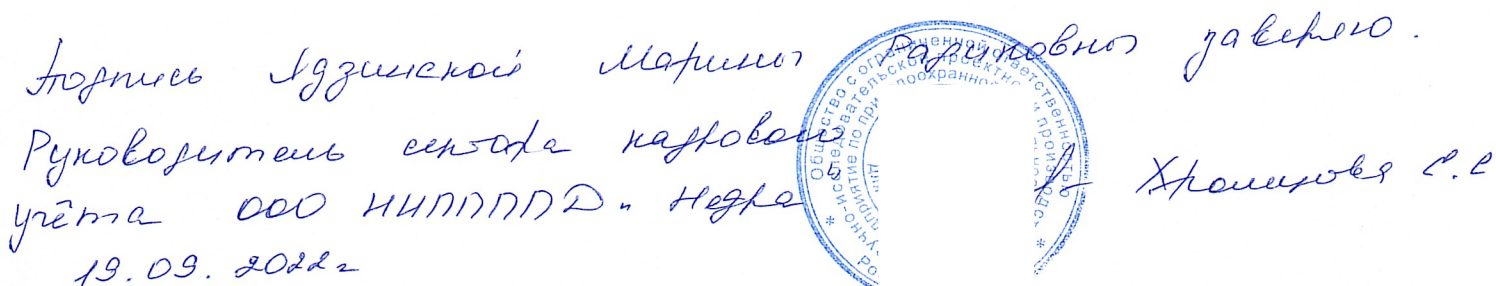 Подпись Ядзинской Марины Радиковны заверяю.
Руководитель сектора кадрового
учёта ООО НИППППД "Недра" Хромцова С.С
19.09.2022г
Общество с ограниченной ответственностью